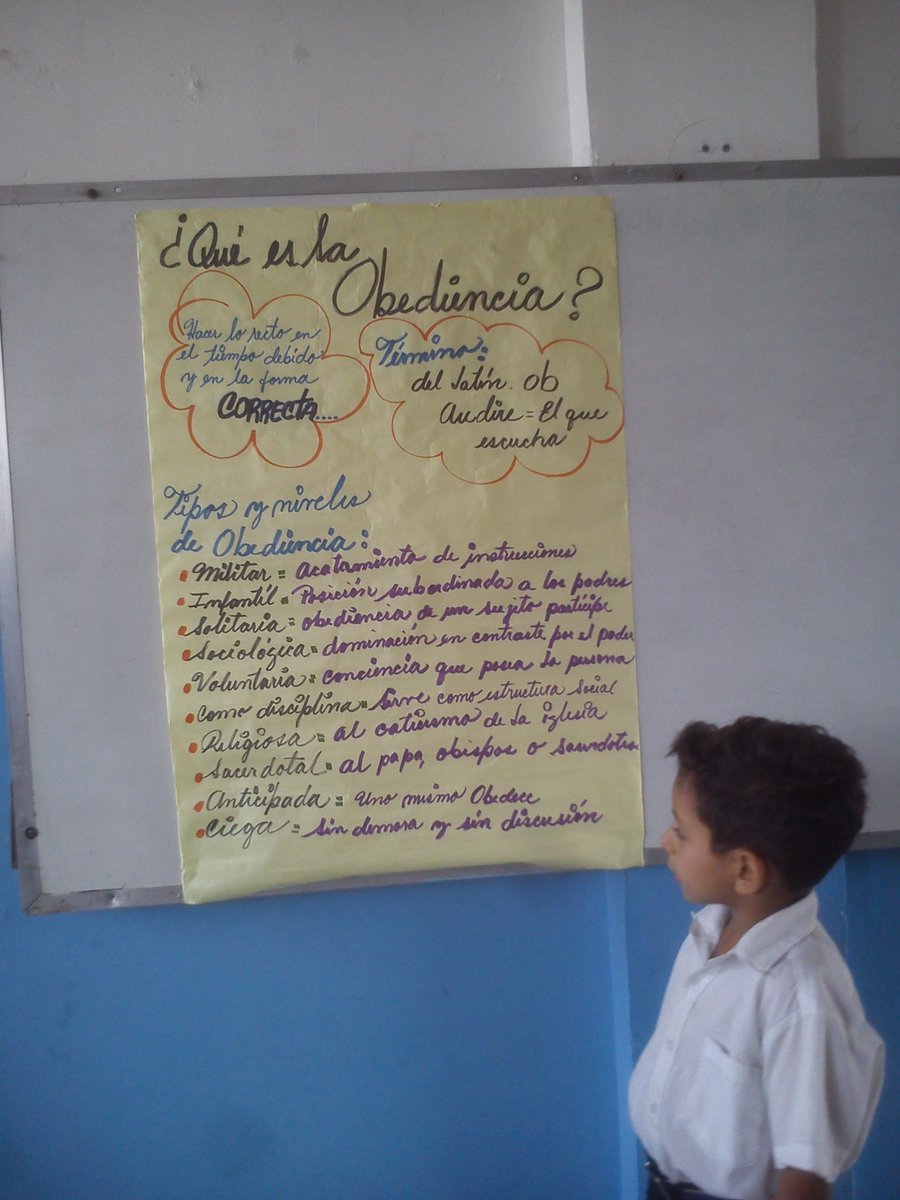 ¿Qué es la
Obediencia?
Hacer lo recto en
el tiempo debido
y en la forma
CORRECTA....
Término:
del latín. ob
Audire = El que
escucha
Tipos y niveles
de Obediencia:
• Militar = Acatamiento de instrucciones
• Infantil = Posición subordinada a los padres
• Solitaria = obediencia de un sujeto partícipe
• Sociológica = dominación en contraste por el poder
• Voluntaria = conciencia que posea la persona
• Como disciplina = Sirve como estructura social
• Religiosa = al catecismo de la iglesia
• Sacerdotal = al papa, obispos o sacerdotes
• Anticipada = Uno mismo Obedece
• Ciega = sin demora y sin discusión